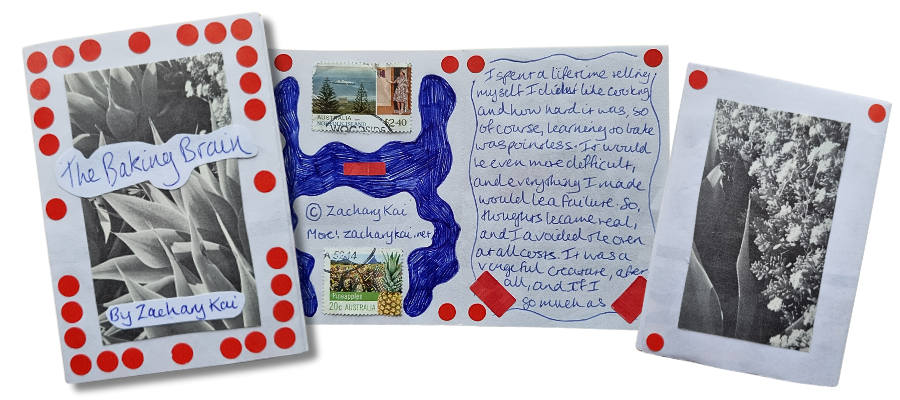 The Baking Brain
By Zachary Kai
AUSTRALIA
NORFOLK ISLAND
$2.40
WOODSIDE
© Zachary Kai
More! zacharykai.net
Pineapples
20c AUSTRALIA
I spent a lifetime telling
myself I didn't like cooking
and how hard it was, so
of course, learning to bake
was pointless. It would
be even more difficult,
and everything I made
would be a failure. So,
thoughts became real,
and I avoided the oven
at all costs. It was a
vengeful creature, after
all, and if I
so much as